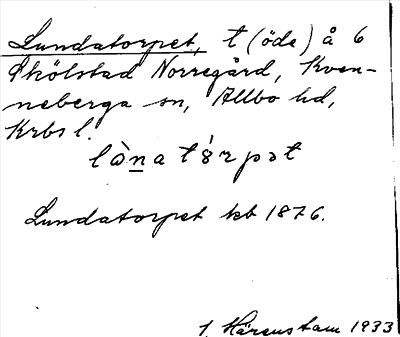 Lundatorpet, t (öde) å 6
Skölstad Norregård, Kven-
neberga sn, Allbo hd,
Krbs l.
lànatórpət
Lundatorpet kb 1876.
1. Härenstam 1933